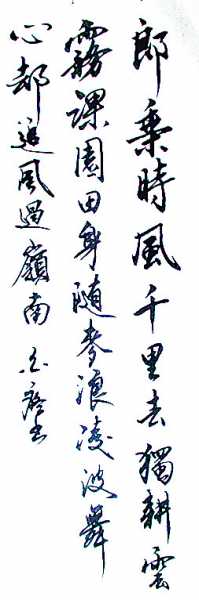 郎乘時風千里去獨耕雲
霧課園田身随麥浪凌波舞
心都追風過嶺南